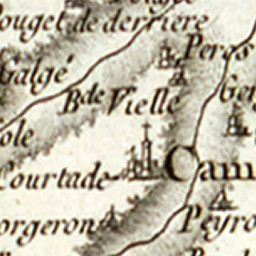 ouget de derriere
Peros
Galgé
B.de Vielle
Ge
ole
Courtade
Cam
orgeron
Peyro